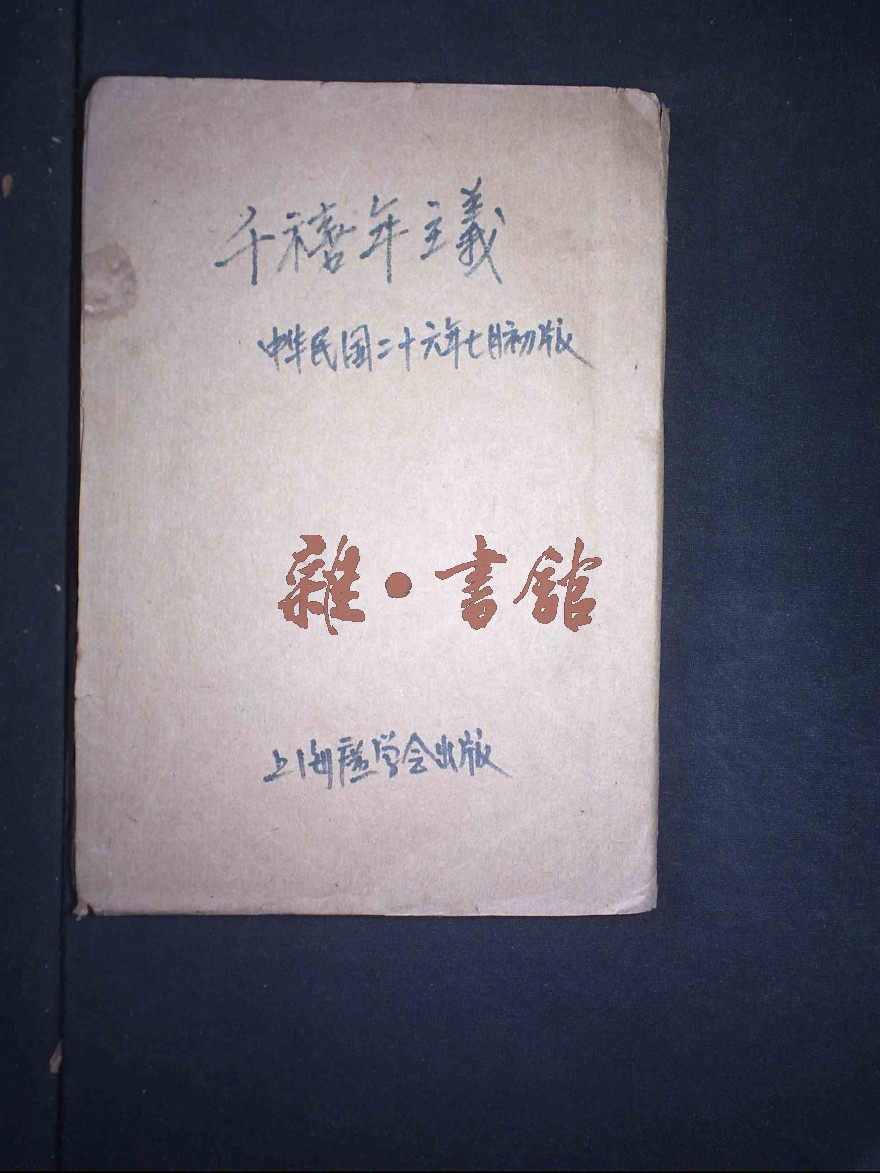 千禧年主義
中华民国二十六年七月初版
雜·書館
上海廣学会出版